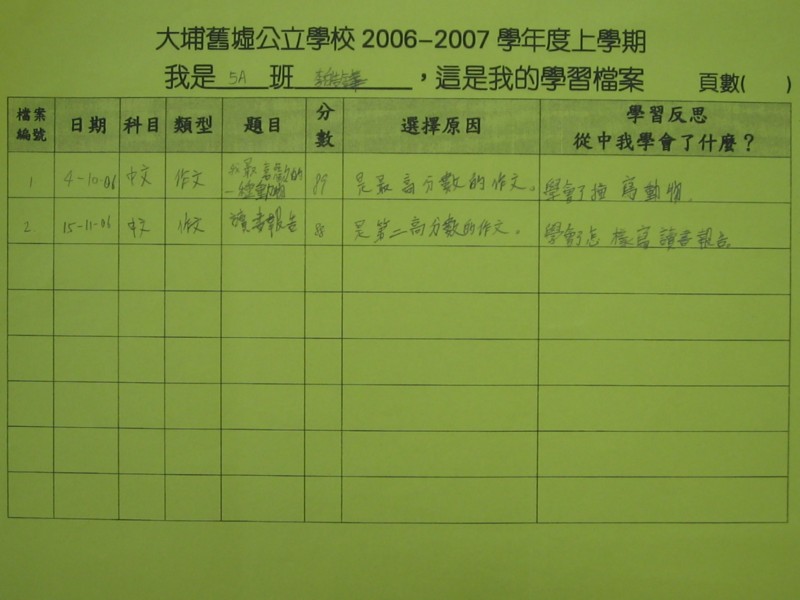 大埔舊墟公立學校 2006-2007 學年度上學期
我是 5A 班 ，這是我的學習檔案 頁數( )
檔案編號 日期 科目 類型 題目 分數 選擇原因 學習反思 從中我學會了什麼？
1 4-10-06 中文 作文 我最喜歡的一種動物 89 是最高分數的作文。 學會了 寫動物.
2. 15-11-06 中文 作文 讀書報告 88 是第二高分數的作文。 學會了怎樣寫讀書報告